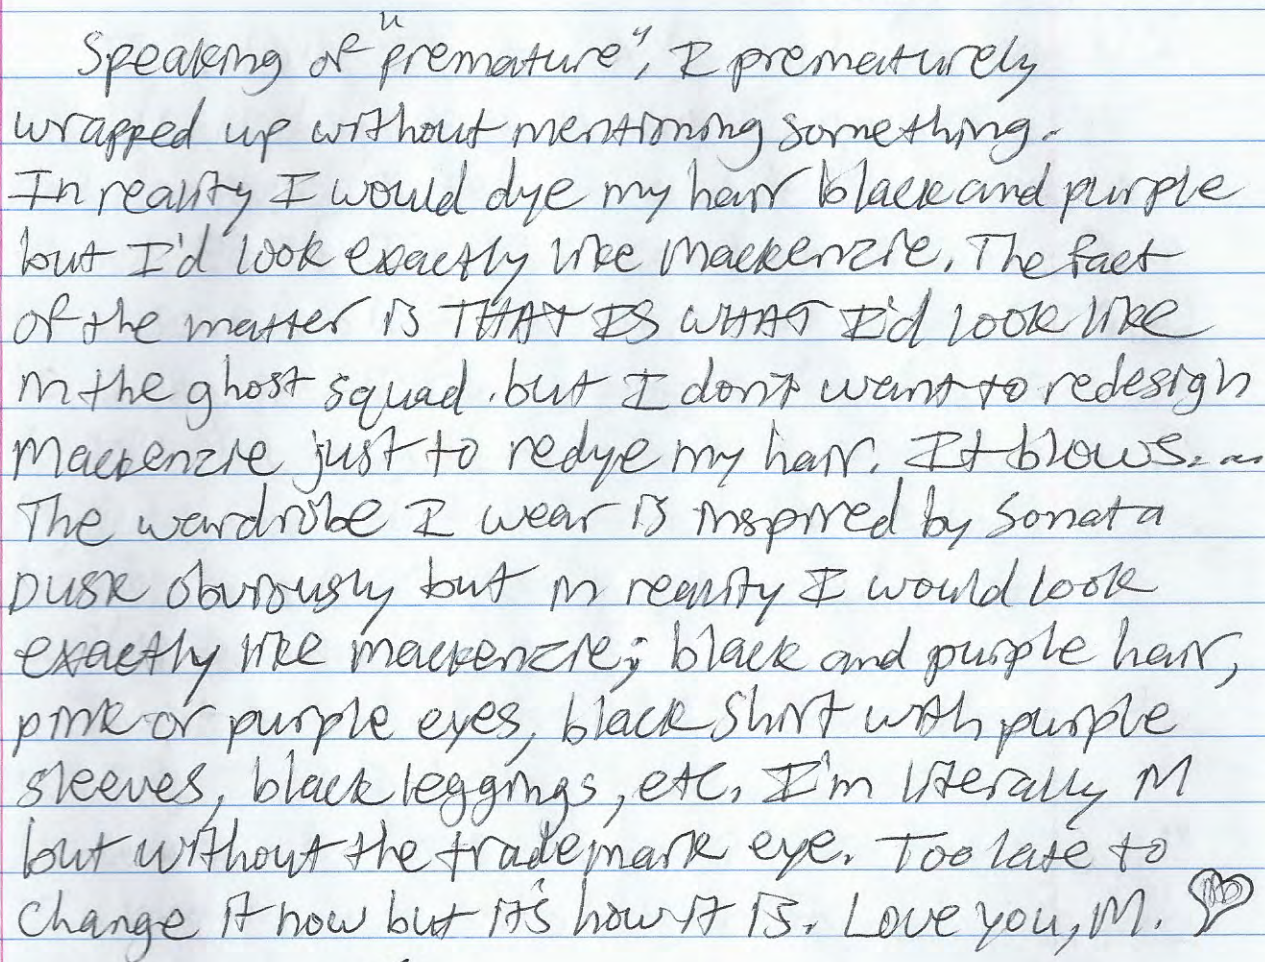 Speaking of "premature", I prematurely
wrapped up without mentioning something.
In reality I would dye my hair black and purple
but I'd look exactly like Mackenzie. The fact
of the matter is THAT IS WHAT I'd look like
in the ghost squad. but I don't want to redesign
Mackenzie just to redye my hair. It blows....
The wardrobe I wear is inspired by Sonata
Dusk obviously but in reality I would look
exactly like mackenzie; black and purple hair,
pink or purple eyes, black shirt with purple
sleeves, black leggings, etc. I'm literally M
but without the trademark eye. Too late to
change it now but it's how it is. Love you, M.